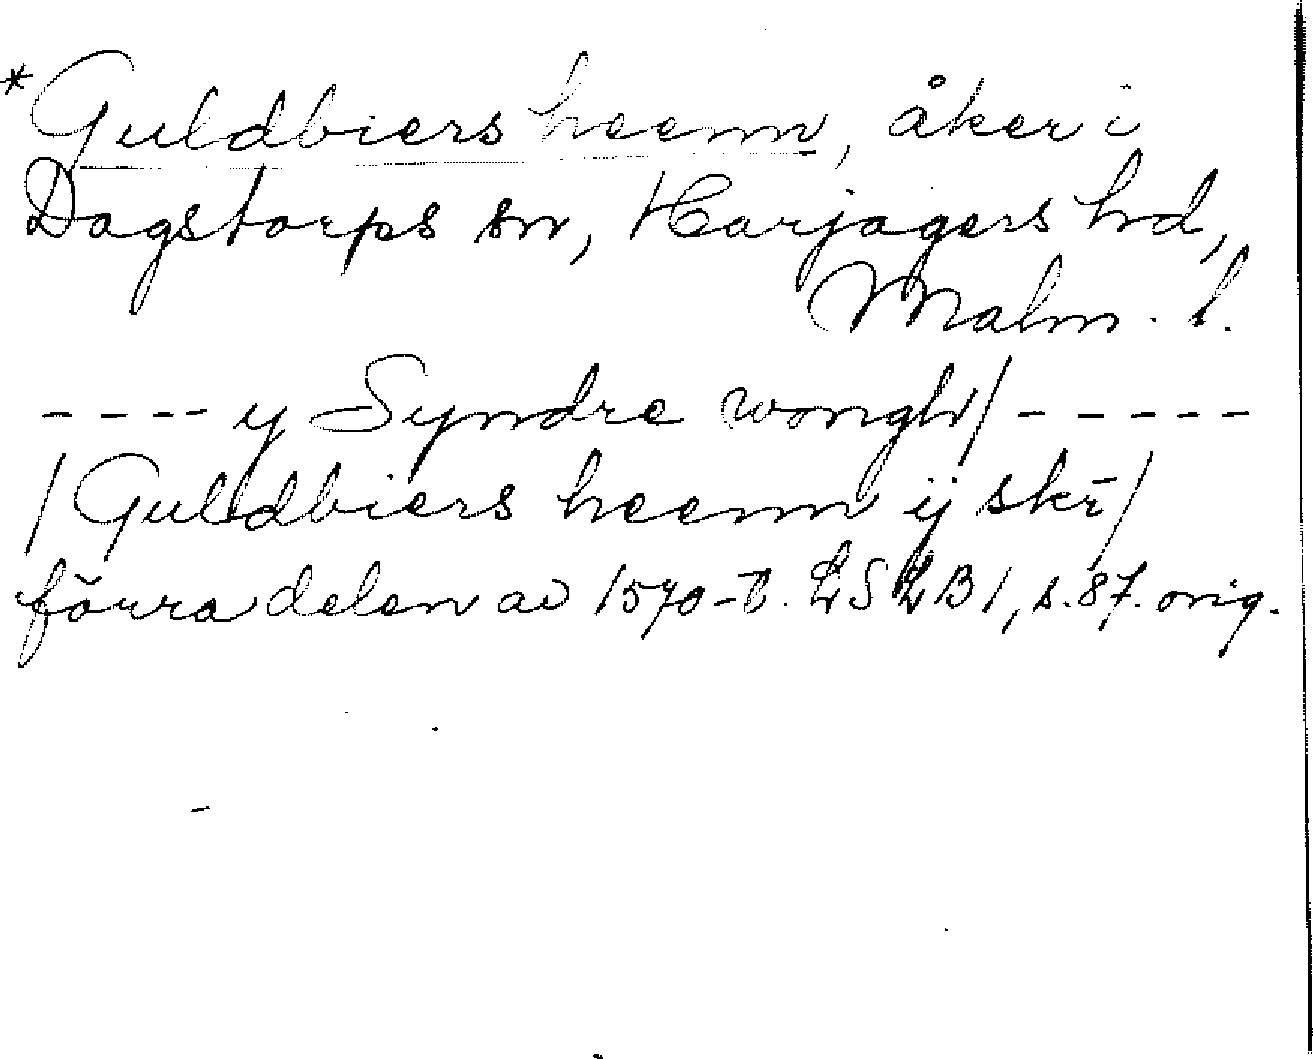 *Guldbiers heem, åker i
Dagstorps sn, Harjagers hd,
Malm. l.
---- y Syndre wongh/ -----
/Guldbiers heem ij skr/
förra delen av 1570-t. LSLB 1, s. 87. orig.